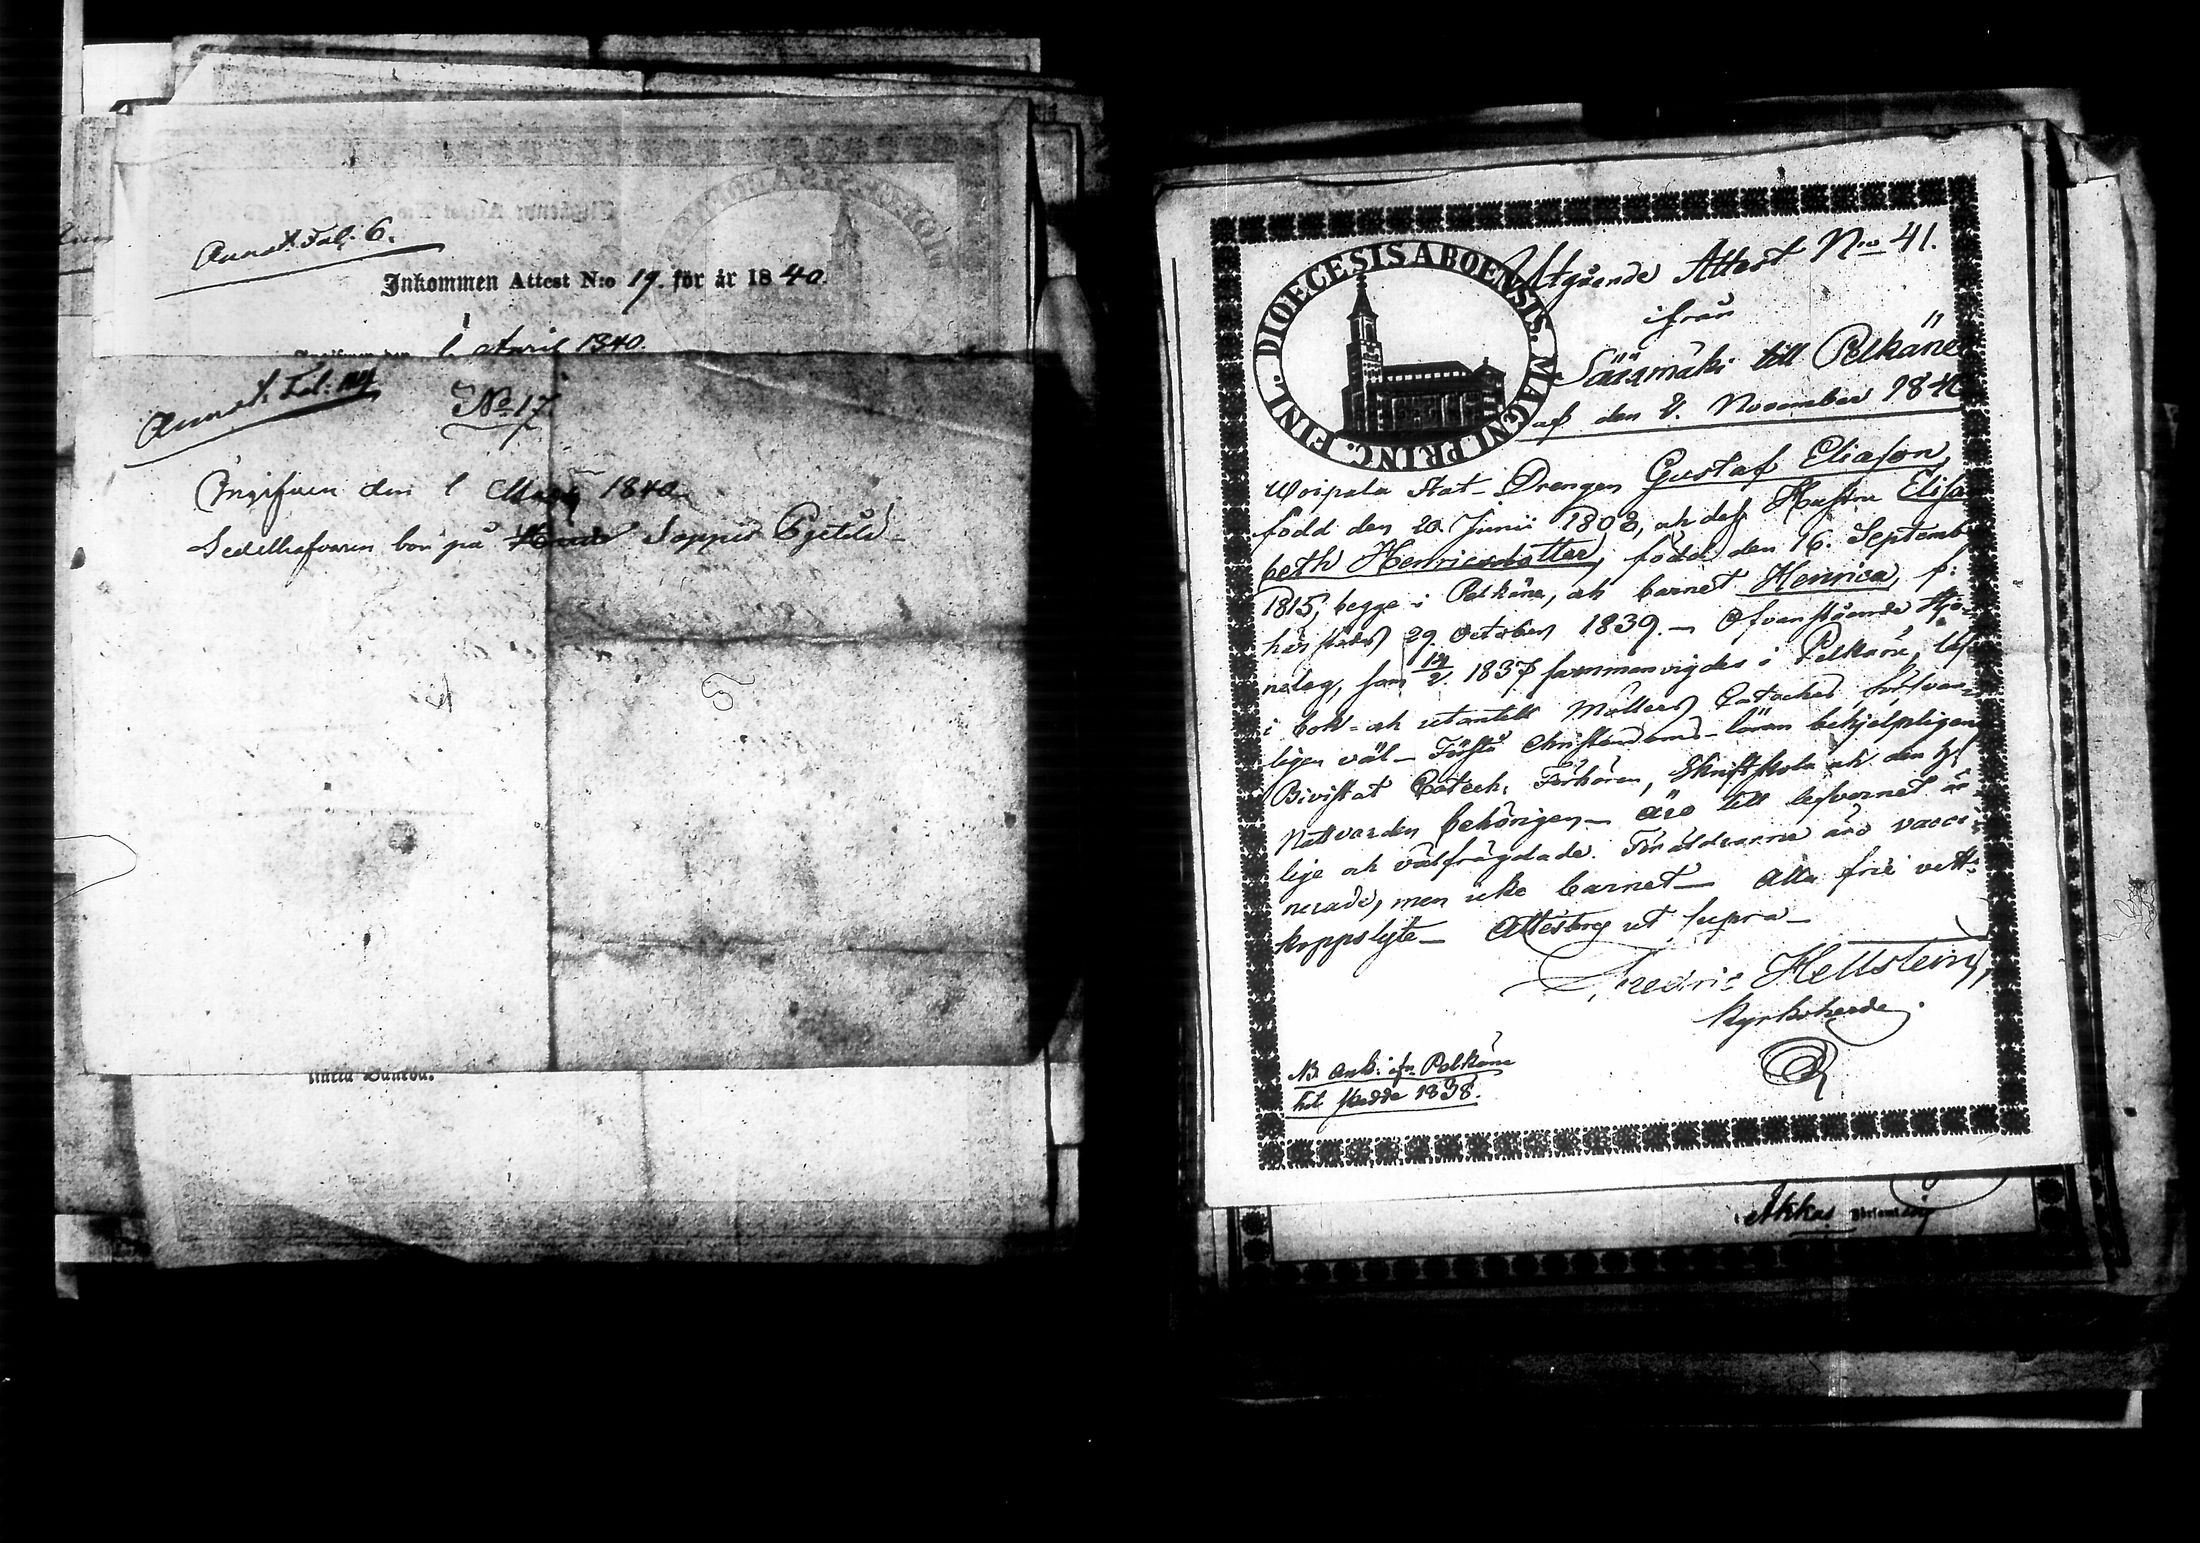 Annot. Fol: 6.
Inkommen Attest N:o 19. för år 1840.
1 April 1840.
Annot. Fol: 114
No 17
Ingifven den 1 Maij 1840
Sedelhafvaren bor på Soppis
DIOECESIS ABOENSIS. MAGNI PRINC. FINL.
Utgående Attest Nro 41.
ifrån
Sääxmäki till Pelkäne
af den 8. November 1840
Woipala Stat-Drengen Gustaf Eliason,
född den 20. Junii 1808, och dess Hustru Elisa
beth Henricsdotter, född den 16. Septemb
1815, begge i Pelkäne, och barnet Henrica, f.
härstädes 29 October 1839. — Ofvanstående Hjo-
nelag, som 14/2 1837 sammanvigdes i Pelkäne, läsa
i bok och utantill Möllers Cateches försvar-
ligen väl — Förstå Christendoms-läran behjelpligen
Bivistat Catech. Förhören, Skriftskola och den H.
Nattvarden behörigen — äro till lefvernet är-
lige och välfrägdade. Föräldrarne äro vacci-
nerade, men icke barnet — Alla frie i vett:
koppslyte — Attesterar ut supra —
Fredric Hellstein,
Kyrkoherde.
NB. Ank: ifr. Pelkäne
hit skedde 1838.
Akkas